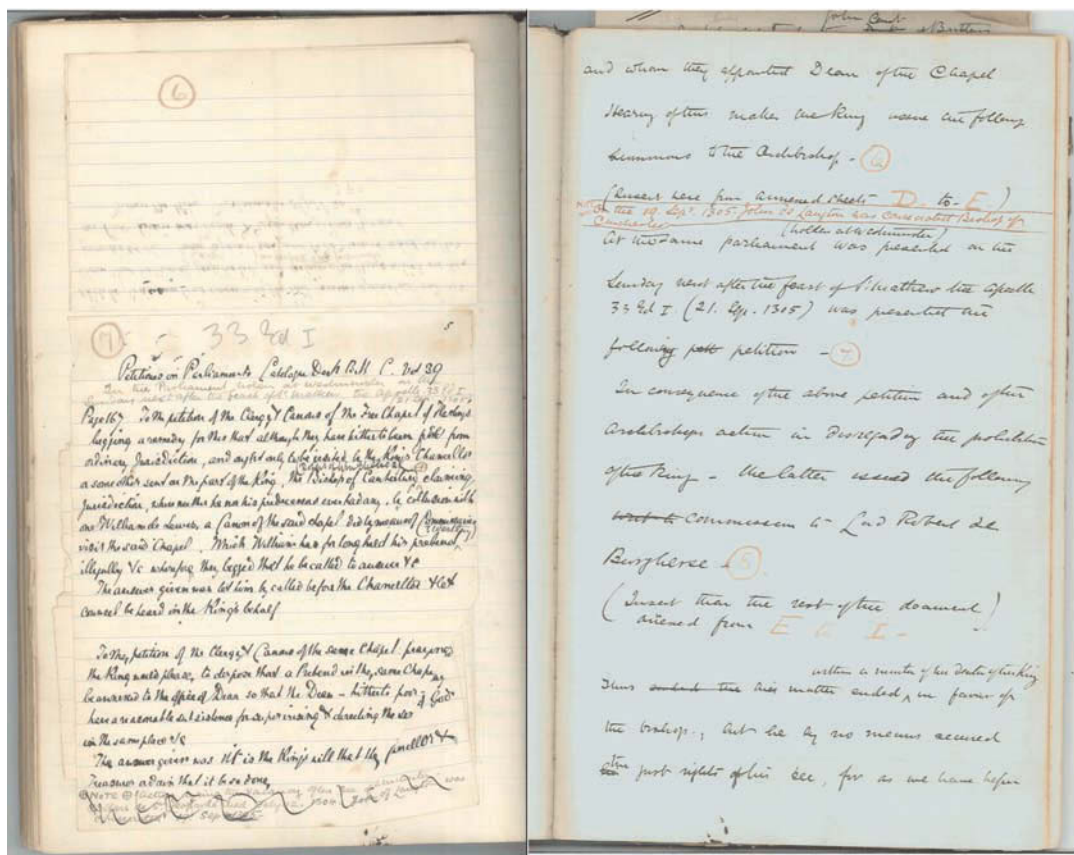 6
7
33 Ed I
5
Petitions in Parliaments Catalogue Desk Bk C. Vol 39
In the Parliament holden at Westminster on the
Sunday next after the feast of St. Mathew the apostle 33 Ed I
Page 167. To the petition of the Clergy & Canons of the Free Chapel of Hastings
begging a remedy for this that although they have hitherto been from
ordinary Jurisdiction, and ought only to be visited by the King's Chancellor
or some other sent on the part of the King, the Bishop of Canterbury claiming
Jurisdiction, where neither he nor his predecessors ever had any, by collusion with
one William de Lewes, a Canon of the said chapel did by means of
visit the said Chapel. Which William has for long held his prebend
illegally &c wherefore they begged that he be called to answer &c
The answer given was let him be called before the Chancellor & let
counsel be heard on the King's behalf
To the petition of the Clergy & Canons of the same Chapel
the King would please, to dispose that a Prebend in the same Chapel
be annexed to the office of Dean so that the Dean – hitherto poor
have a reasonable subsistence for supervising & directing the of God
in the same place &c
The answer given was "It is the King's will that the &
Treasurer that it be so done
NOTE
John of Langton
and whom they appointed Dean of the Chapel
Hearing of this makes the King issue the following
summons to the Archbishop – 6
(Insert here from annexed sheets D to E)
On the 19. Sept. 1305 John de Langton was consecrated Bishop of
Chichester
(holden at Westminster)
At the same parliament was presented on the
Sunday next after the feast of St. Mathew the apostle
33 Ed I (21. Sep. 1305) was presented the
following petition – 7
In consequence of the above petition and of the
Archbishops action in disregarding the prohibition
of the King – the latter issued the following
writ to commission to Lord Robert de
Burgherse – 5
(Insert then the rest of the document)
annexed from E to I –
within a month of the death of the King
Thus ended the this matter ended, in favour of
the bishop; but he by no means secured
the just rights of his see, for as we have before